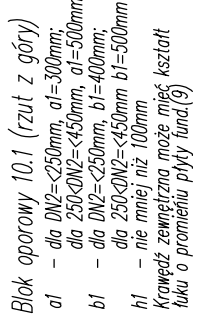 Blok oporowy 10.1 (rzut z góry)
a1 - dla DN2=<250mm, a1=300mm;
dla 250<DN2=<450mm, a1=500mm
b1 - dla DN2=<250mm, b1=400mm;
dla 250<DN2=<450mm b1=500mm
h1 - nie mniej niż 100mm
Krawędź zewnętrzna może mieć kształt
łuku o promieniu płyty fund.(9)